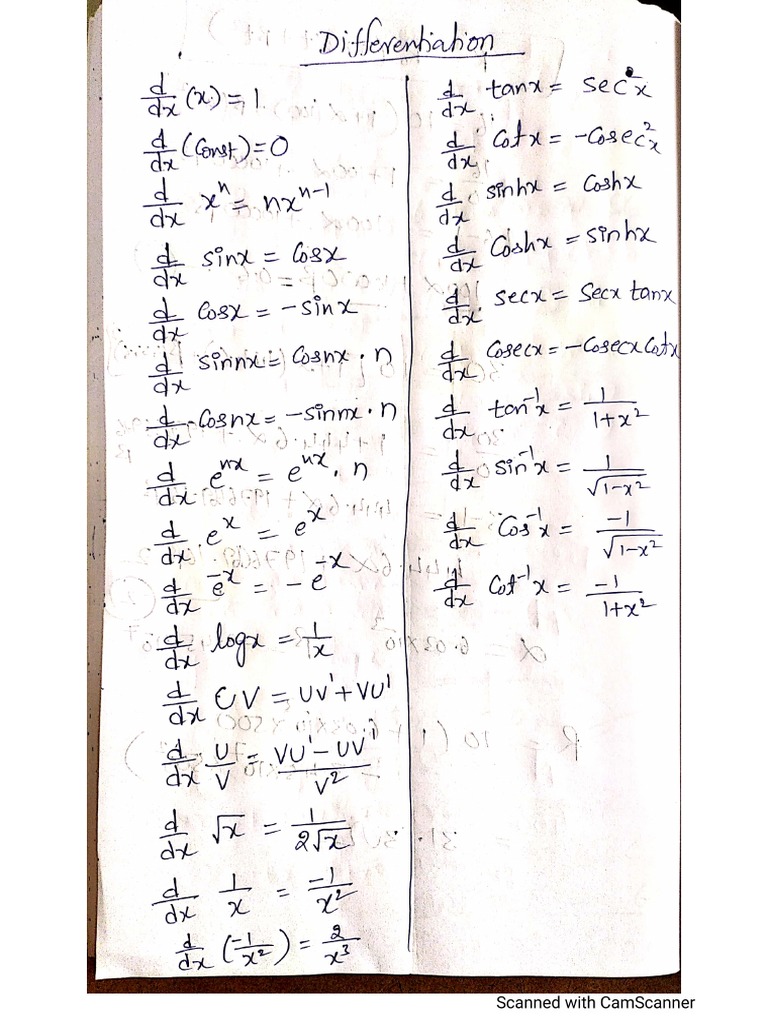 Differentiation
d/dx (x) = 1
d/dx (Const) = 0
d/dx xⁿ = nxⁿ⁻¹
d/dx sinx = Cosx
d/dx Cosx = -sinx
d/dx sinnx = Cosnx · n
d/dx Cosnx = -sinnx · n
d/dx eⁿˣ = eⁿˣ · n
d/dx eˣ = eˣ
d/dx e⁻ˣ = -e⁻ˣ
d/dx logx = 1/x
d/dx UV = UV' + VU'
d/dx U/V = VU' - UV' / V²
d/dx √x = 1/2√x
d/dx 1/x = -1/x²
d/dx (-1/x²) = 2/x³
d/dx tanx = sec²x
d/dx Cotx = -Cosec²x
d/dx sinhx = Coshx
d/dx Coshx = sinhx
d/dx secx = Secx tanx
d/dx Cosecx = -CosecxCotx
d/dx tan⁻¹x = 1/1+x²
d/dx sin⁻¹x = 1/√1-x²
d/dx Cos⁻¹x = -1/√1-x²
d/dx Cot⁻¹x = -1/1+x²
Scanned with CamScanner